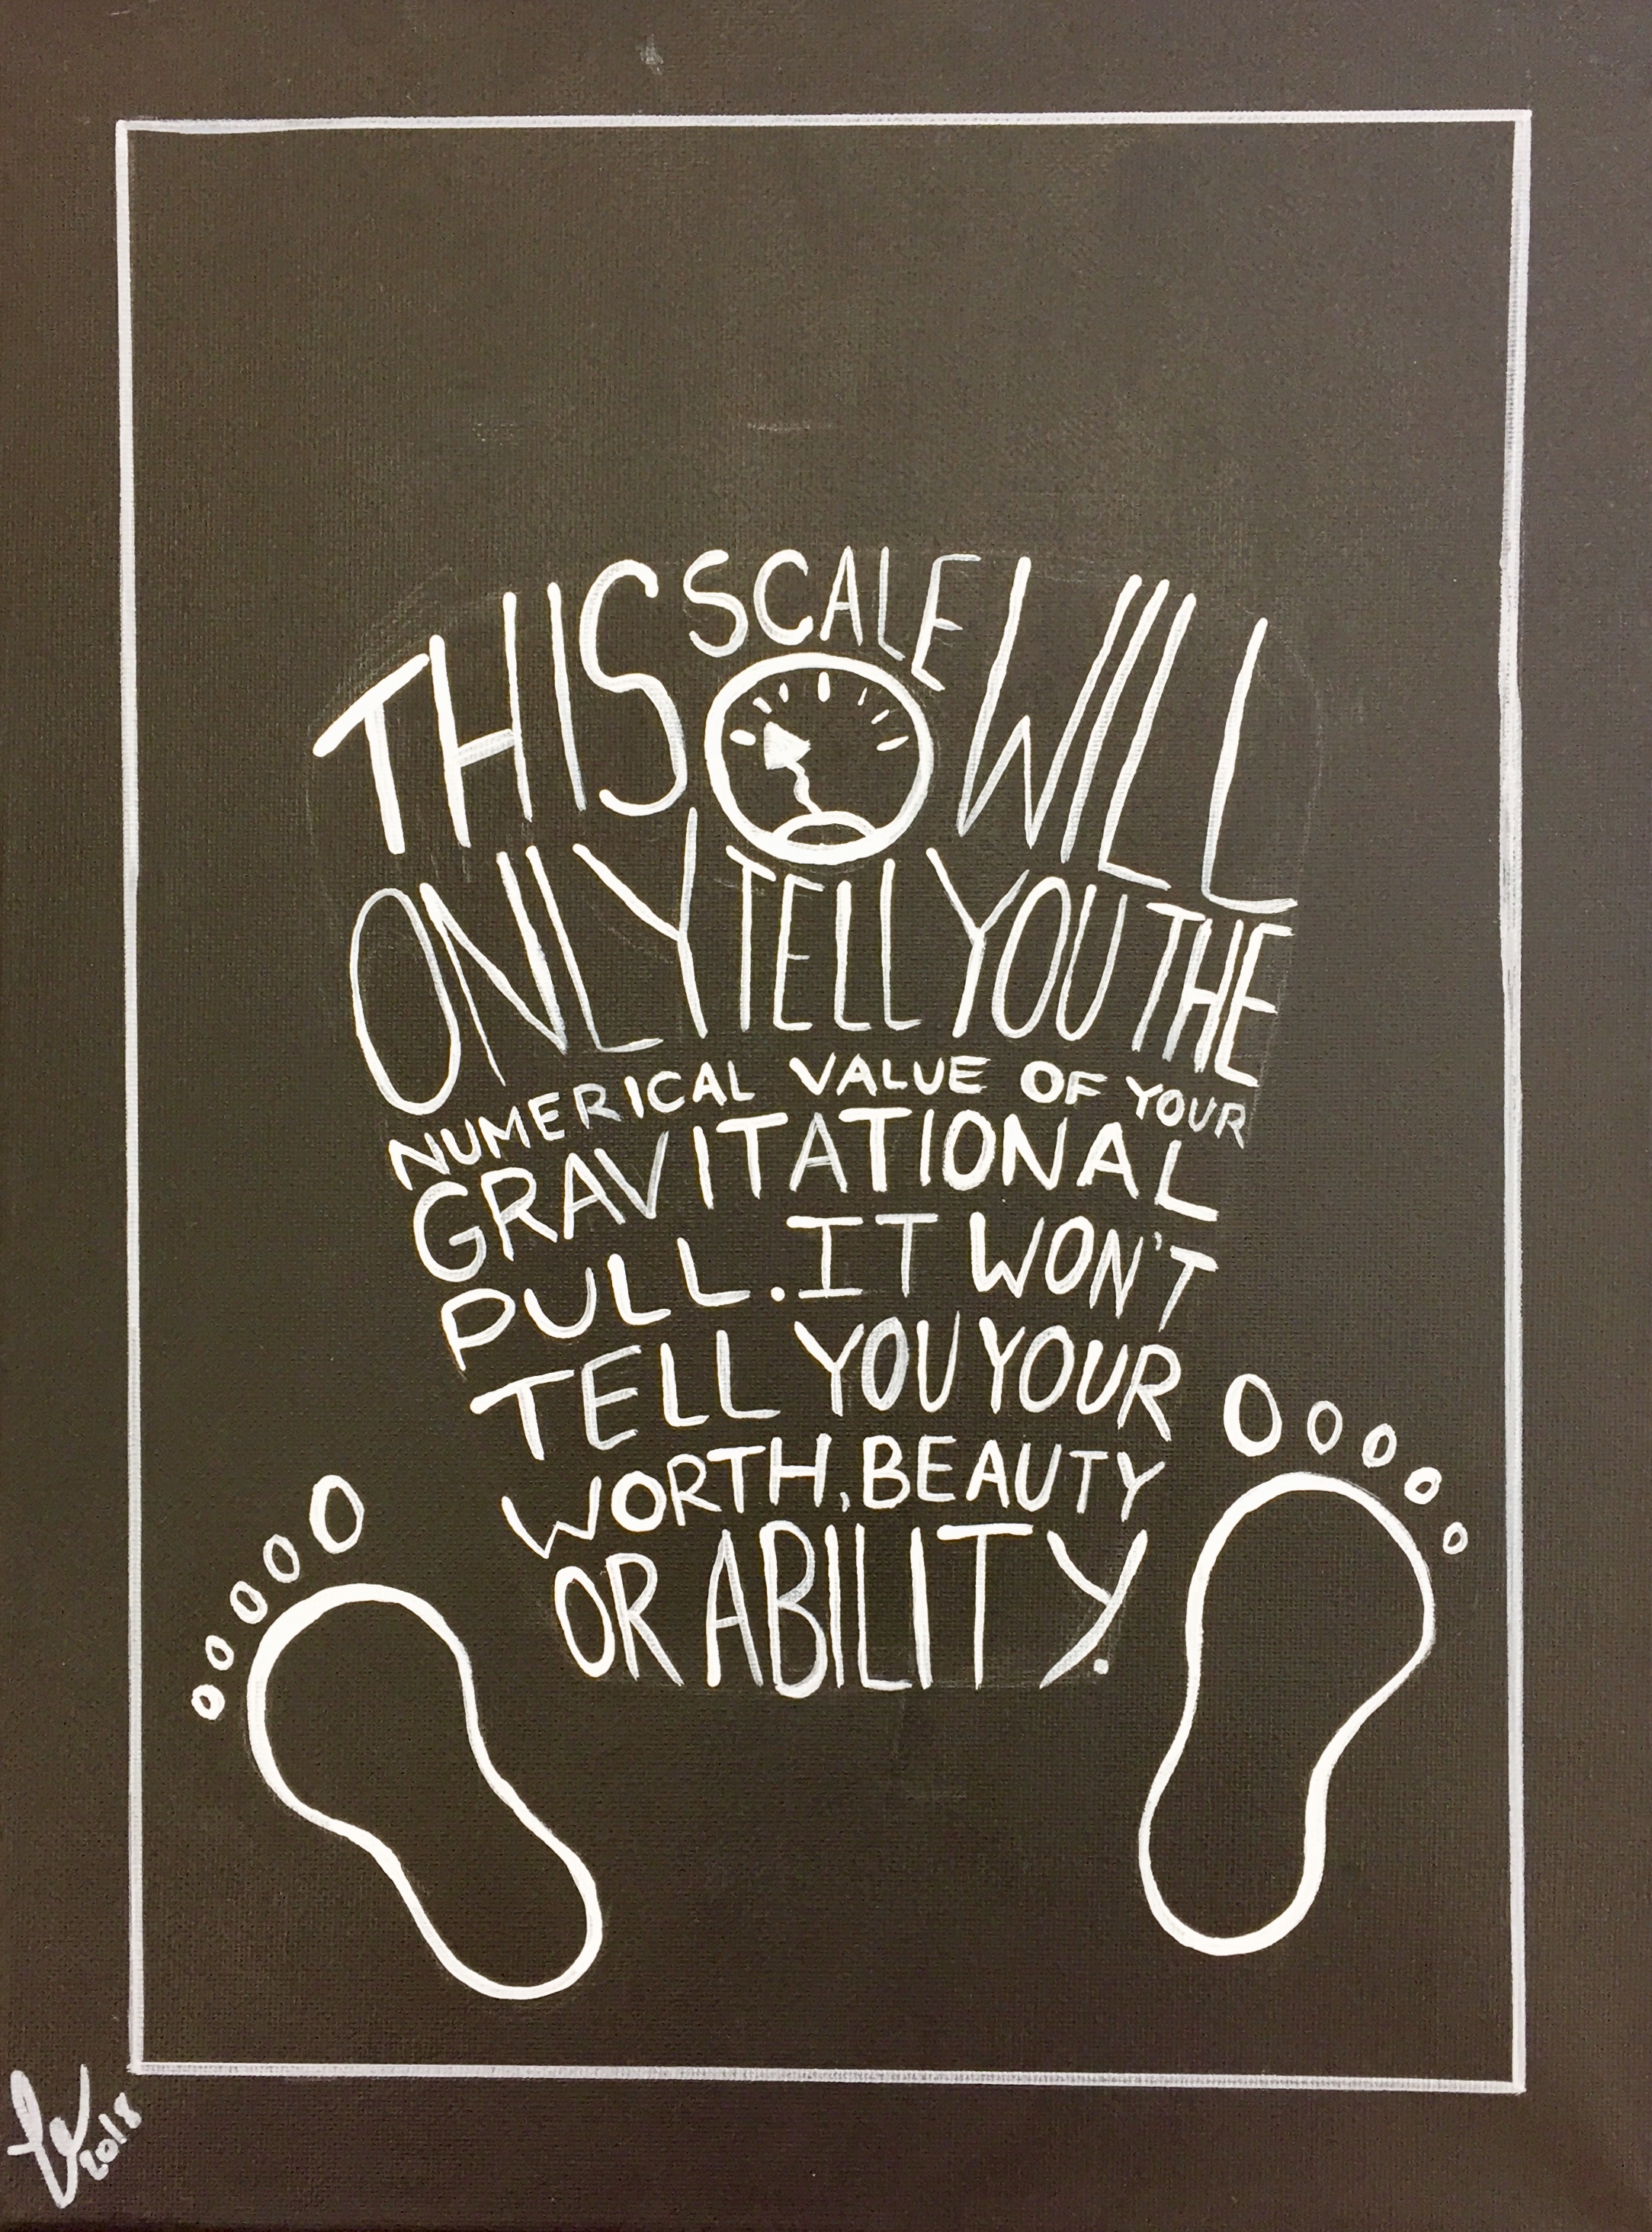 THIS SCALE WILL
ONLY TELL YOU THE
NUMERICAL VALUE OF YOUR
GRAVITATIONAL
PULL. IT WON'T
TELL YOU YOUR
WORTH, BEAUTY
OR ABILITY.
2018